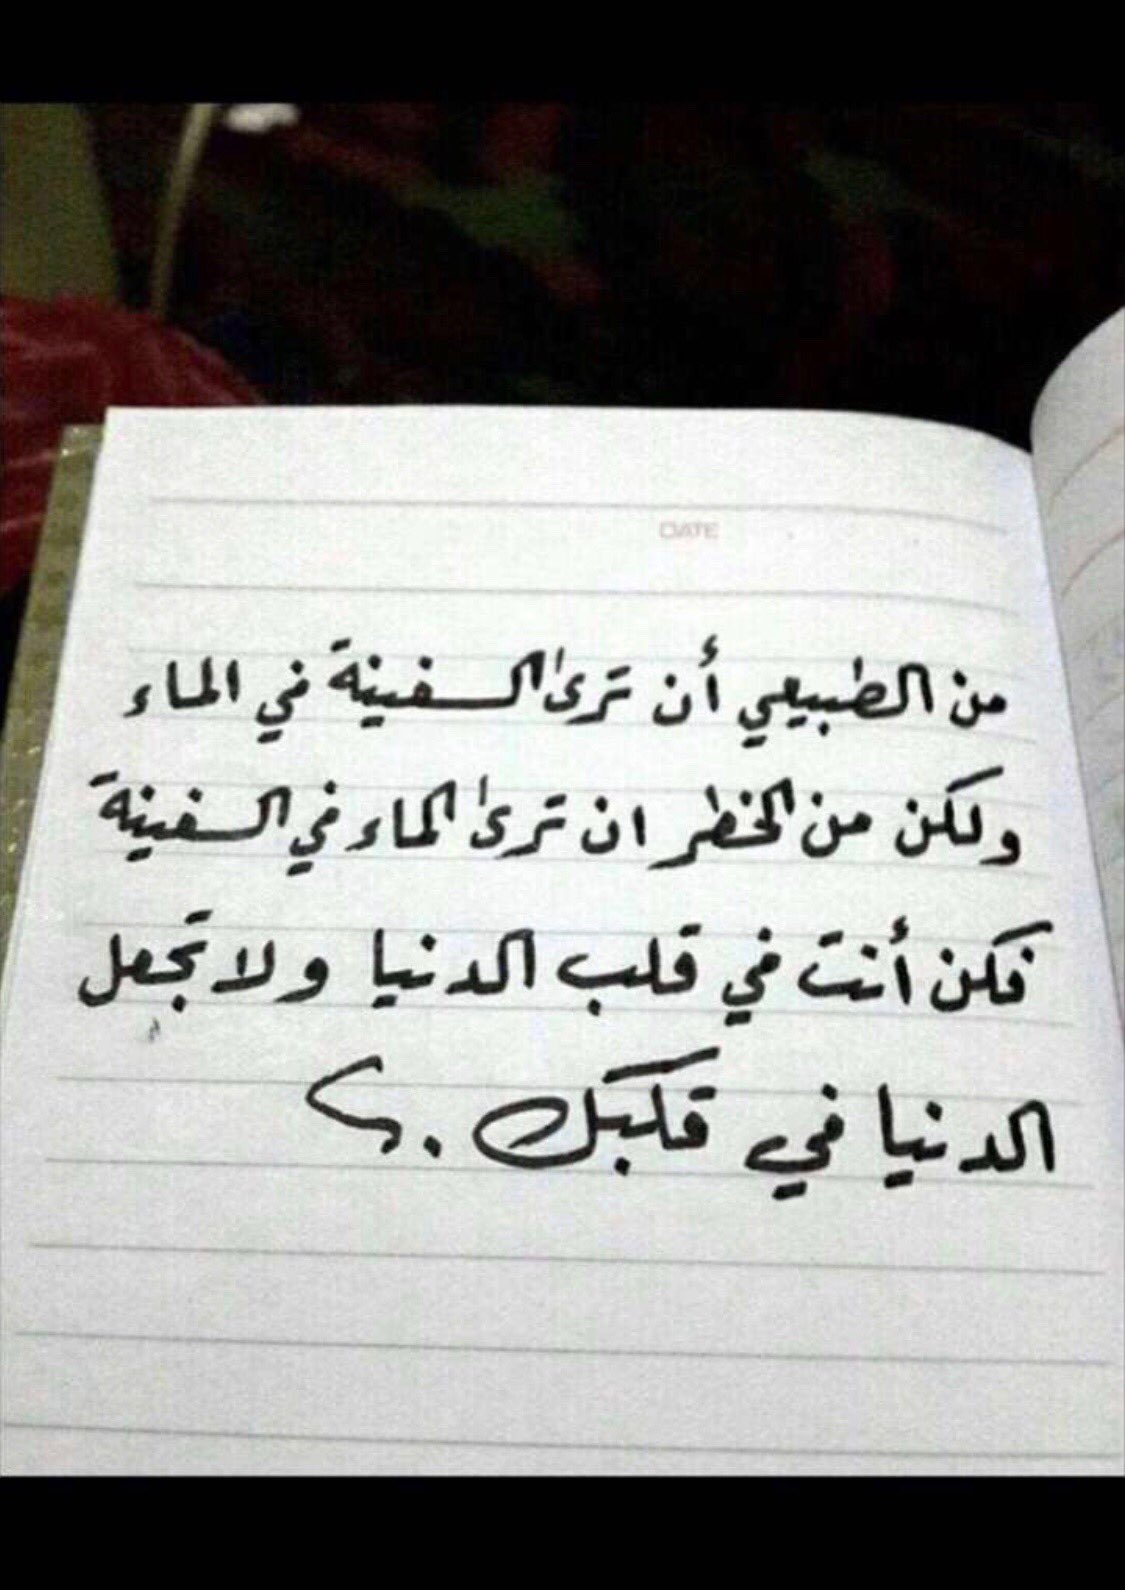 DATE
من الطبيعي أن ترىٰ السفينة في الماء
ولكن من الخطر ان ترىٰ الماء في السفينة
فكن أنت في قلب الدنيا ولا تجعل
الدنيا في قلبك .